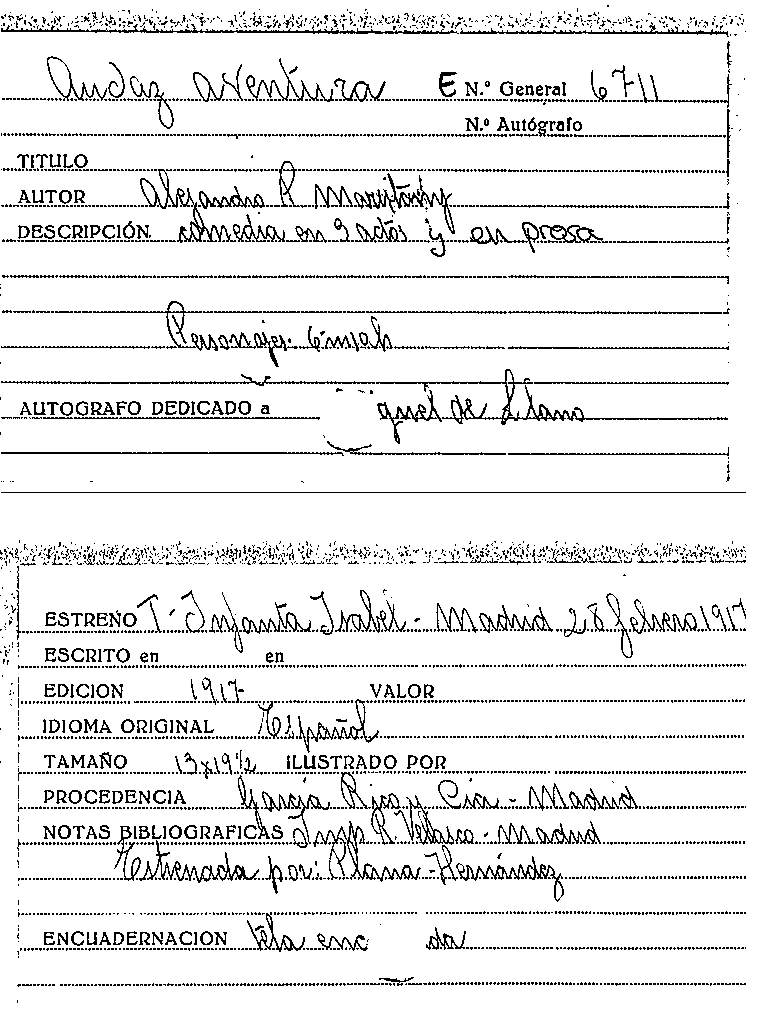 Audaz aventura E N.º General 6711
N.º Autógrafo
TITULO
AUTOR Alejandro P Maristany
DESCRIPCIÓN. comedia en 3 actos y en prosa
Personajes.
AUTOGRAFO DEDICADO a guel de Llano
ESTRENO T. Infanta Isabel - Madrid 28 febrero 1917
ESCRITO en en
EDICION 1917 VALOR
IDIOMA ORIGINAL Español
TAMAÑO 13x19½ ILUSTRADO POR
PROCEDENCIA García Rico y Cia - Madrid
NOTAS BIBLIOGRAFICAS Imp R. Velasco - Madrid
Estrenada por: Plana - Hernández
ENCUADERNACION tela enc da